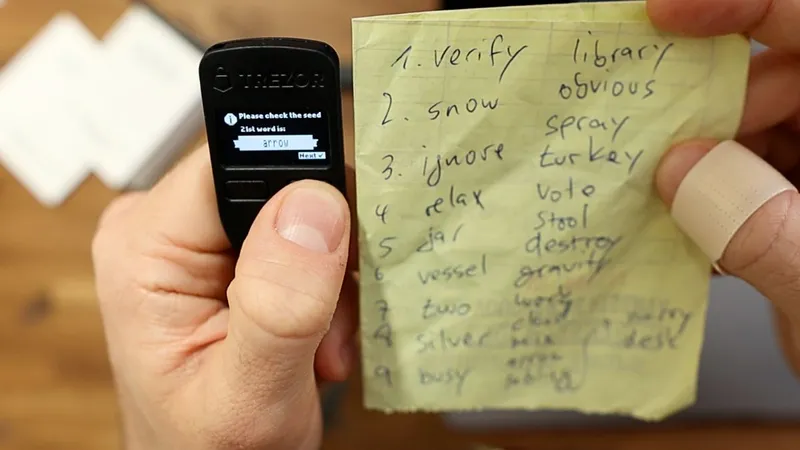 TREZOR
Please check the seed
21st word is:
arrow
Next
1. verify library
2. snow obvious
spray
3. ignore turkey
4 relax vote
5 jar stool
destroy
6 vessel gravity
7 two
8 silver desk
9 busy